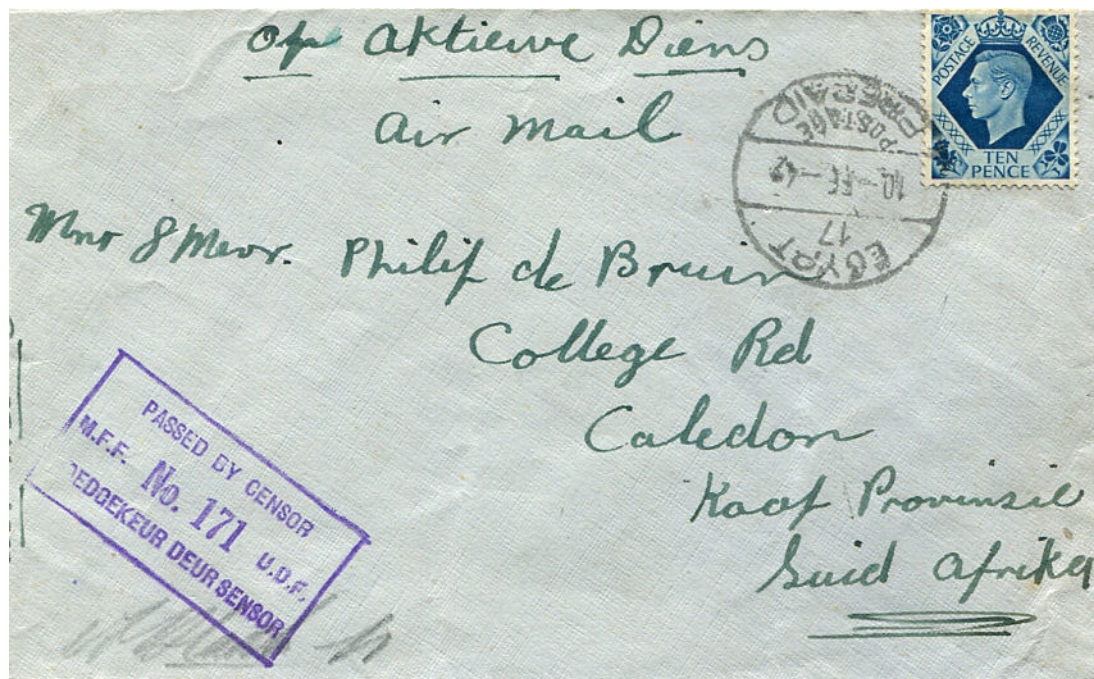 Op Aktiewe Diens
Air Mail
POSTAGE REVENUE
TEN PENCE
POSTAGE PREPAID
10-FE-42
17
EGYPT
Mnr & Mevr. Philip de Bruin
College Rd
Caledon
Kaap Provinsie
Suid Afrika
PASSED BY CENSOR
M.F.F. No. 171 U.D.F.
OEDGEKEUR DEUR SENSOR